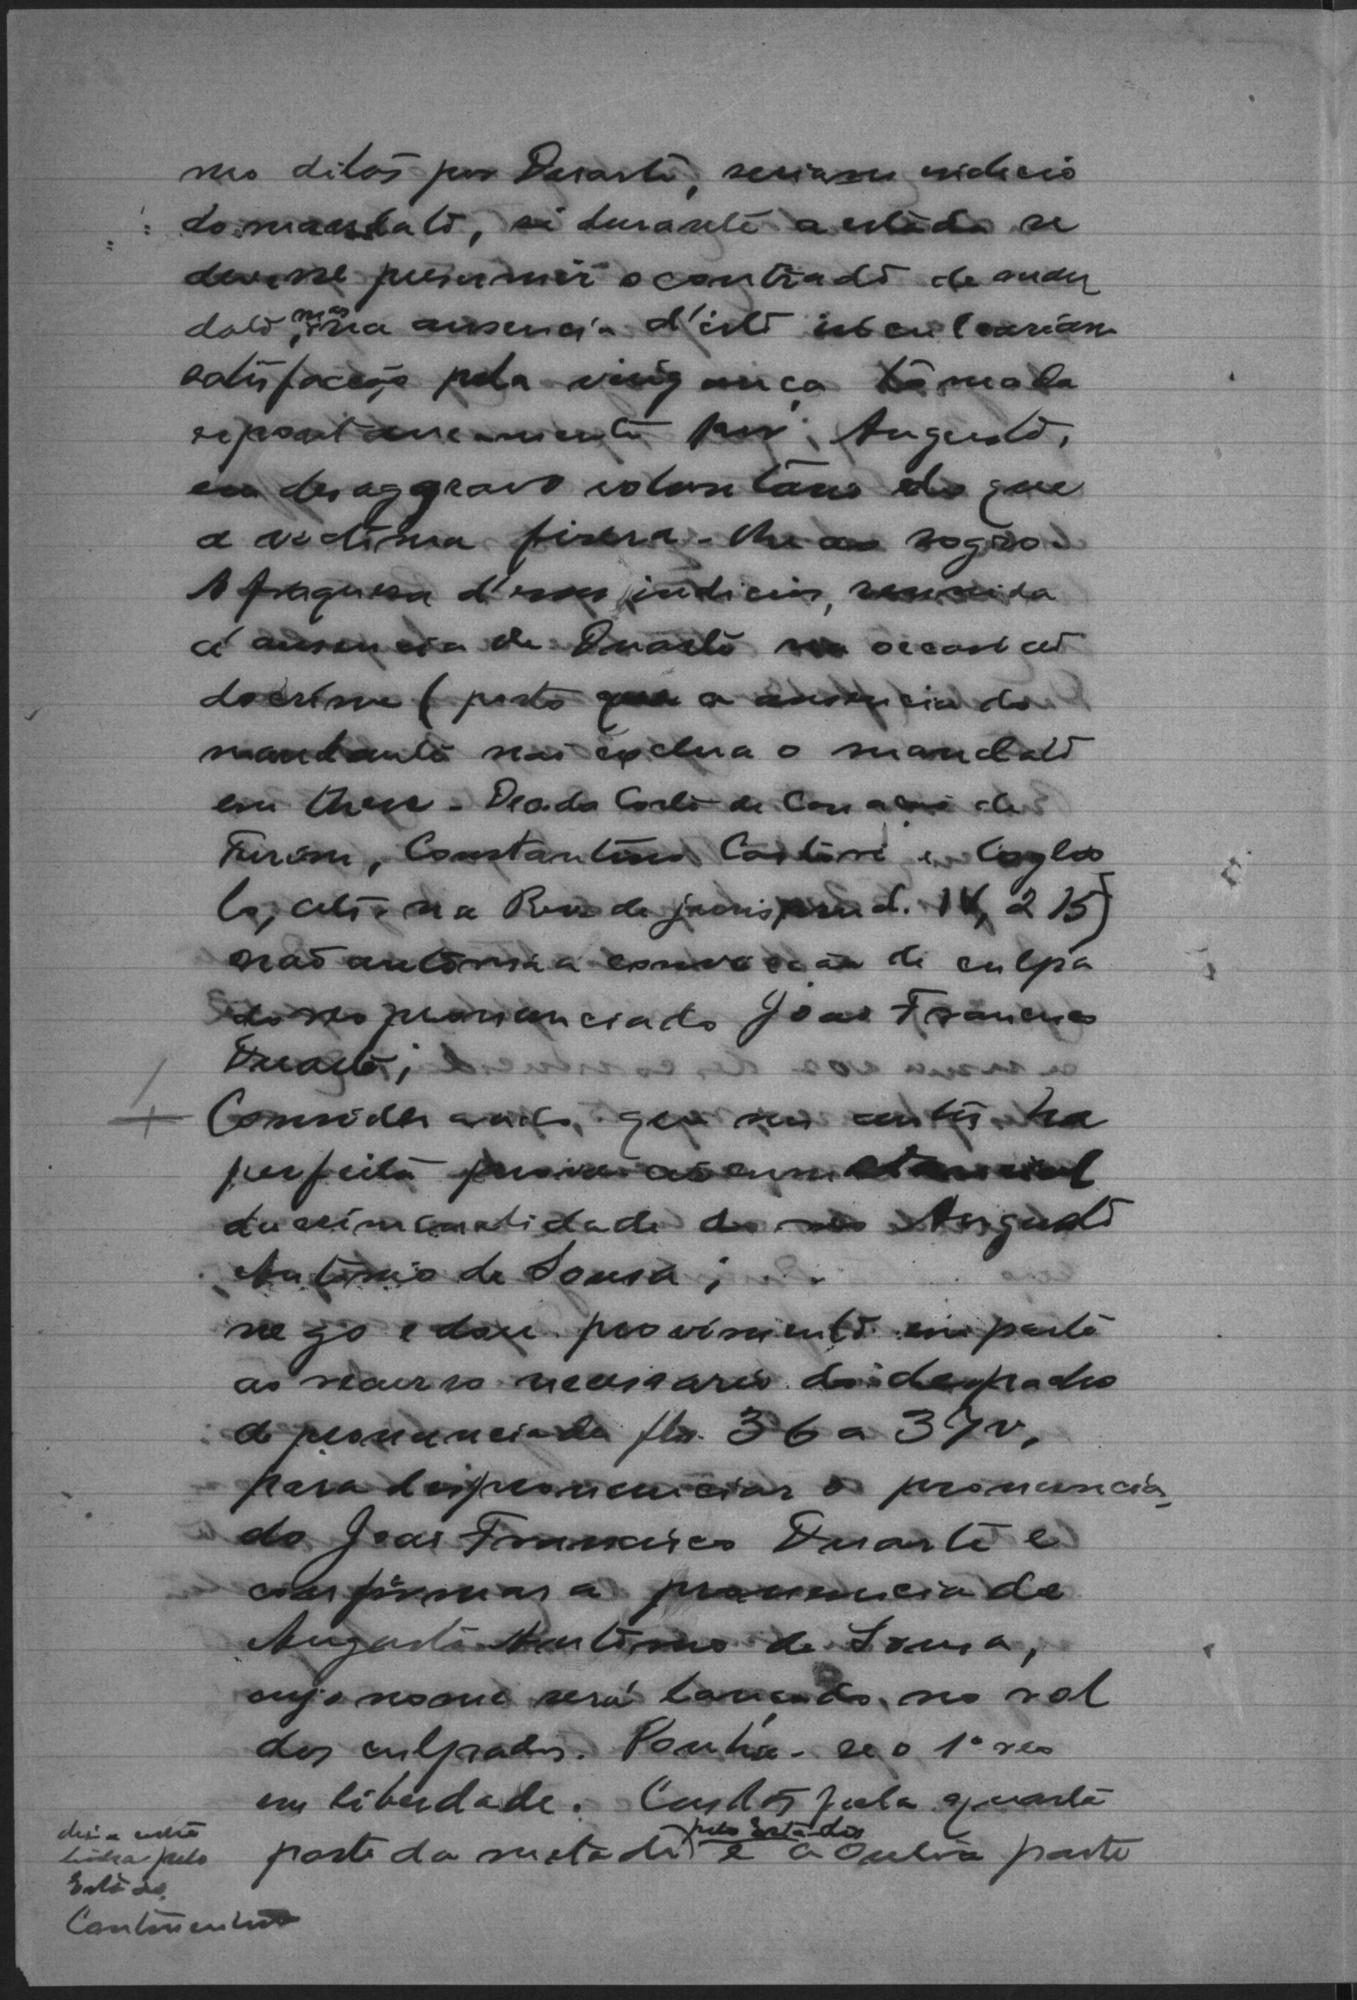 mo ditos por Duarte, seriam indicio
do mandato, si durante a estada se
devesse presumir o contracto de man
dato, mas na ausencia d'isto inculcariam
satisfacção pela vingança tomada
espontaneamente por Augusto,
em desaggravo voluntario do que
a victima fizera-lhe ao sogro.
A fraquesa d'esses indicios, reunida
á ausencia de Duarte na occasião
do crime (posto que a ausencia do
mandante não exclua o mandato
em these - Dec. da Corte de Cassação de
Turim, Constantino Castori e Coglio
lo, cit. na Rev. de jurisprud. IV, 215)
não autorisa a convicção de culpa
do réo pronunciado João Francisco
Duarte;
Considerando que nos autos ha
perfeita prova circumstancial
da criminalidade do réo Augusto
Antonio de Sousa;
nego e dou provimento em parte
ao recurso necessario do despacho
de pronuncia de fls. 36 a 37v,
para despronunciar o pronuncia
do João Francisco Duarte e
confirmar a pronuncia de
Augusto Antonio de Sousa,
cujo nome será lançado no rol
dos culpados. Ponha-se o 1º réo
em liberdade. Custas pela quarta
parte da metade pelo Estado e a outra parte
digo entre
linha pelo
Estado.